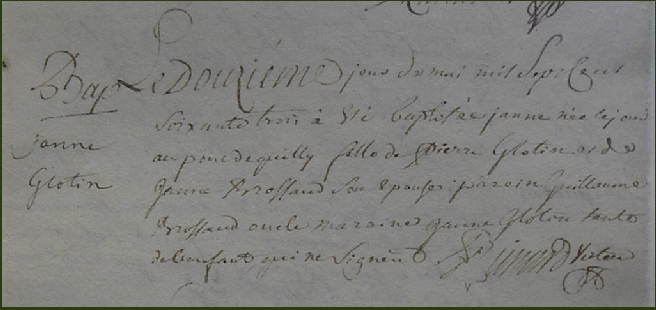 Bap
janne
Glotin
Le Douzieme jour du mai mil Sept Cent
soixante trois à été baptisée janne née le jour
au pont de quilly fille de Pierre Glotin et de
janne Brossaud son epouse; parein Guillaume
Brossaud oncle maraine janne Glotin tante
de l'enfant qui ne signent